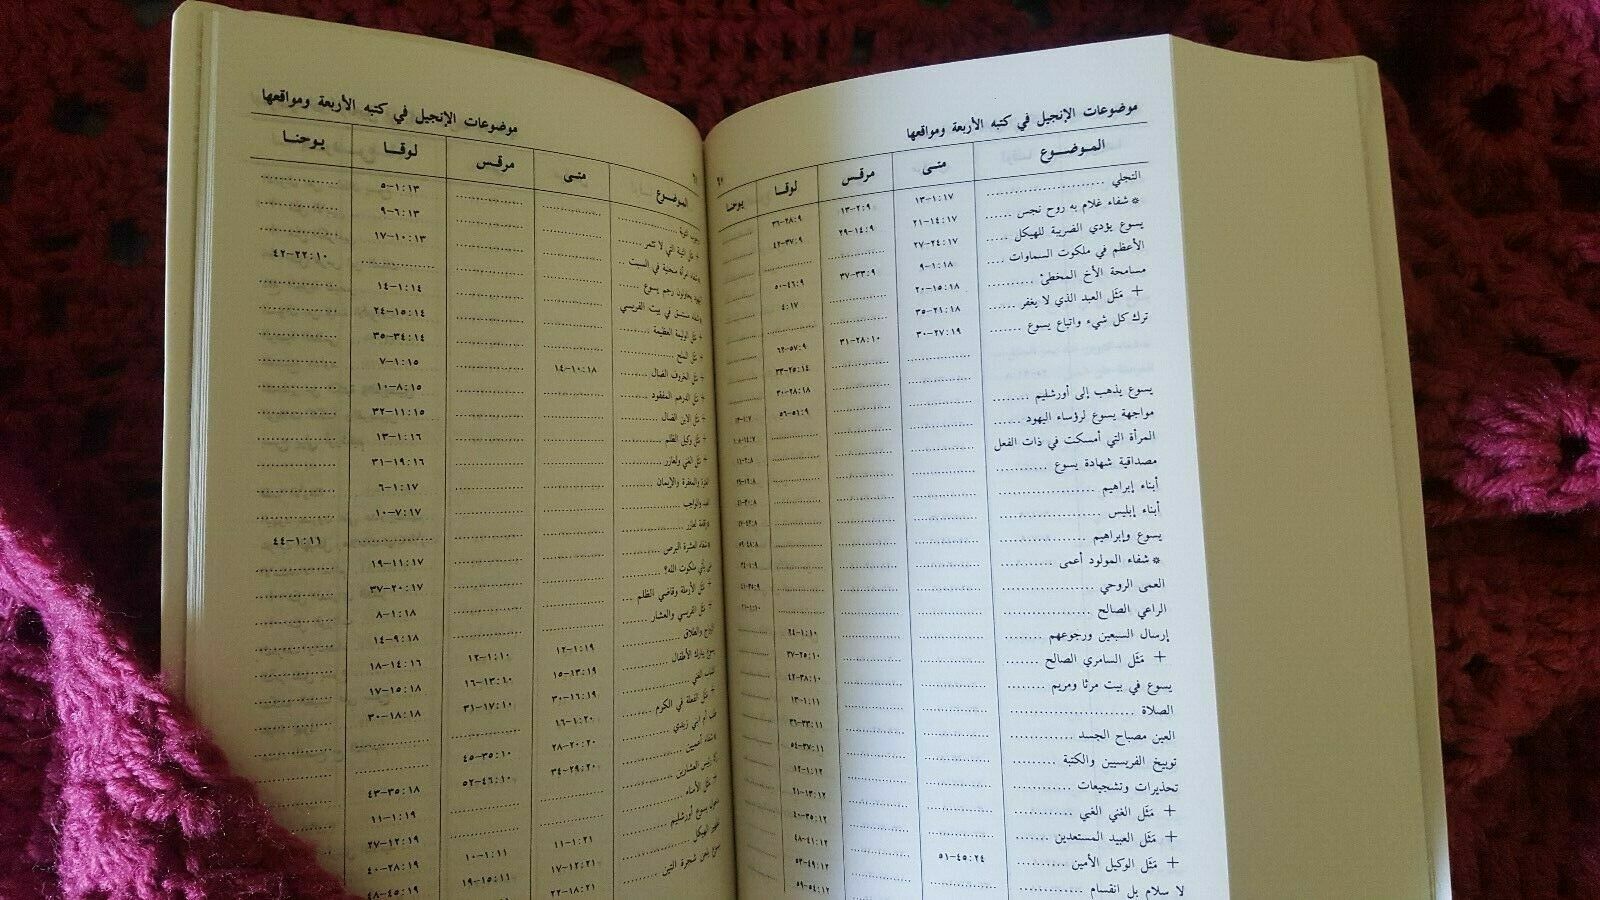 موضوعات الإنجيل في كتبه الأربعة ومواقعها
الموضوع متى مرقس لوقا يوحنا
التجلي .......... ١٧:١-١٣ ٩:٢-١٣ ٩:٢٨-٣٦
* شفاء غلام به روح نجس ...... ١٧:١٤-٢١ ٩:١٤-٢٩ ٩:٣٧-٤٢
يسوع يؤدي الضريبة للهيكل ...... ١٧:٢٤-٢٧
الأعظم في ملكوت السماوات ...... ١٨:١-٩ ٩:٣٣-٣٧ ٩:٤٦-٥٠
مسامحة الأخ المخطئ: ١٨:١٥-٢٠ ١٧:٤
+ مَثَل العبد الذي لا يغفر ...... ١٨:٢١-٣٥
ترك كل شيء واتباع يسوع ...... ١٩:٢٧-٣٠ ١٠:٢٨-٣١ ٩:٥٧-٦٢
١٤:٢٥-٣٣
١٨:٢٨-٣٠
يسوع يذهب إلى أورشليم ........ ٩:٥١-٥٦
مواجهة يسوع لرؤساء اليهود .....
المرأة التي أمسكت في ذات الفعل
مصداقية شهادة يسوع ..........
أبناء إبراهيم ..........
أبناء إبليس ..........
يسوع وإبراهيم ..........
* شفاء المولود أعمى ..........
العمى الروحي ..........
الراعي الصالح ..........
إرسال السبعين ورجوعهم ........ ١٠:١-٢٤
+ مَثَل السامري الصالح ....... ١٠:٢٥-٣٧
يسوع في بيت مرثا ومريم ....... ١٠:٣٨-٤٢
الصلاة .......... ١١:١-١٣
العين مصباح الجسد .......... ١١:٣٣-٣٦
توبيخ الفريسيين والكتبة ........ ١١:٣٧-٥٤
تحذيرات وتشجيعات .......... ١٢:١-١٢
+ مَثَل الغني الغبي .......... ١٢:١٣-٢١
+ مَثَل العبيد المستعدين ........ ١٢:٣٥-٤٠
+ مَثَل الوكيل الأمين .......... ٢٤:٤٥-٥١ ١٢:٤١-٤٨
لا سلام بل انقسام .......... ١٢:٤٩-٥٣
١٢:٥٤-٥٩
موضوعات الإنجيل في كتبه الأربعة ومواقعها
الموضوع متى مرقس لوقا يوحنا
١٣:١-٥
+ مَثَل التينة التي لا تثمر ........ ١٣:٦-٩
في السبت ١٣:١٠-١٧
يسوع ...... ١٠:٢٢-٤٢
في بيت الفريسي ١٤:١-١٤
+ مَثَل الوليمة العظيمة .......... ١٤:١٥-٢٤
+ مَثَل الملح .......... ١٤:٣٤-٣٥
+ مَثَل الخروف الضال .......... ١٨:١٠-١٤ ١٥:١-٧
+ مَثَل الدرهم المفقود .......... ١٥:٨-١٠
+ مَثَل الابن الضال .......... ١٥:١١-٣٢
+ مَثَل وكيل الظلم .......... ١٦:١-١٣
+ مَثَل الغني ولعازر .......... ١٦:١٩-٣١
والمغفرة والإيمان ........ ١٧:١-٦
والواجب .......... ١٧:٧-١٠
لعازر .......... ١١:١-٤٤
* شفاء العشرة البرص .......... ١٧:١١-١٩
متى يأتي ملكوت الله؟ .......... ١٧:٢٠-٣٧
+ مَثَل الأرملة وقاضي الظلم ...... ١٨:١-٨
+ مَثَل الفريسي والعشار ........ ١٨:٩-١٤
الزواج والطلاق .......... ١٩:١-١٢ ١٠:١-١٢ ١٦:١٤-١٨
يسوع يبارك الأطفال .......... ١٩:١٣-١٥ ١٠:١٣-١٦ ١٨:١٥-١٧
الشاب الغني .......... ١٩:١٦-٣٠ ١٠:١٧-٣١ ١٨:١٨-٣٠
+ مَثَل الفعلة في الكرم .......... ٢٠:١-١٦
طلب أم ابني زبدي .......... ٢٠:٢٠-٢٨ ١٠:٣٥-٤٥
* شفاء أعميين .......... ٢٠:٢٩-٣٤ ١٠:٤٦-٥٢ ١٨:٣٥-٤٣
رئيس العشارين .......... ١٩:١-١١
+ مَثَل الأمناء .......... ١٩:١٢-٢٧
دخول يسوع أورشليم .......... ٢١:١-١١ ١١:١-١٠ ١٩:٢٨-٤٠
تطهير الهيكل .......... ٢١:١٢-١٧ ١١:١٥-١٩ ١٩:٤٥-٤٨
يسوع يلعن شجرة التين .......... ٢١:١٨-٢٢